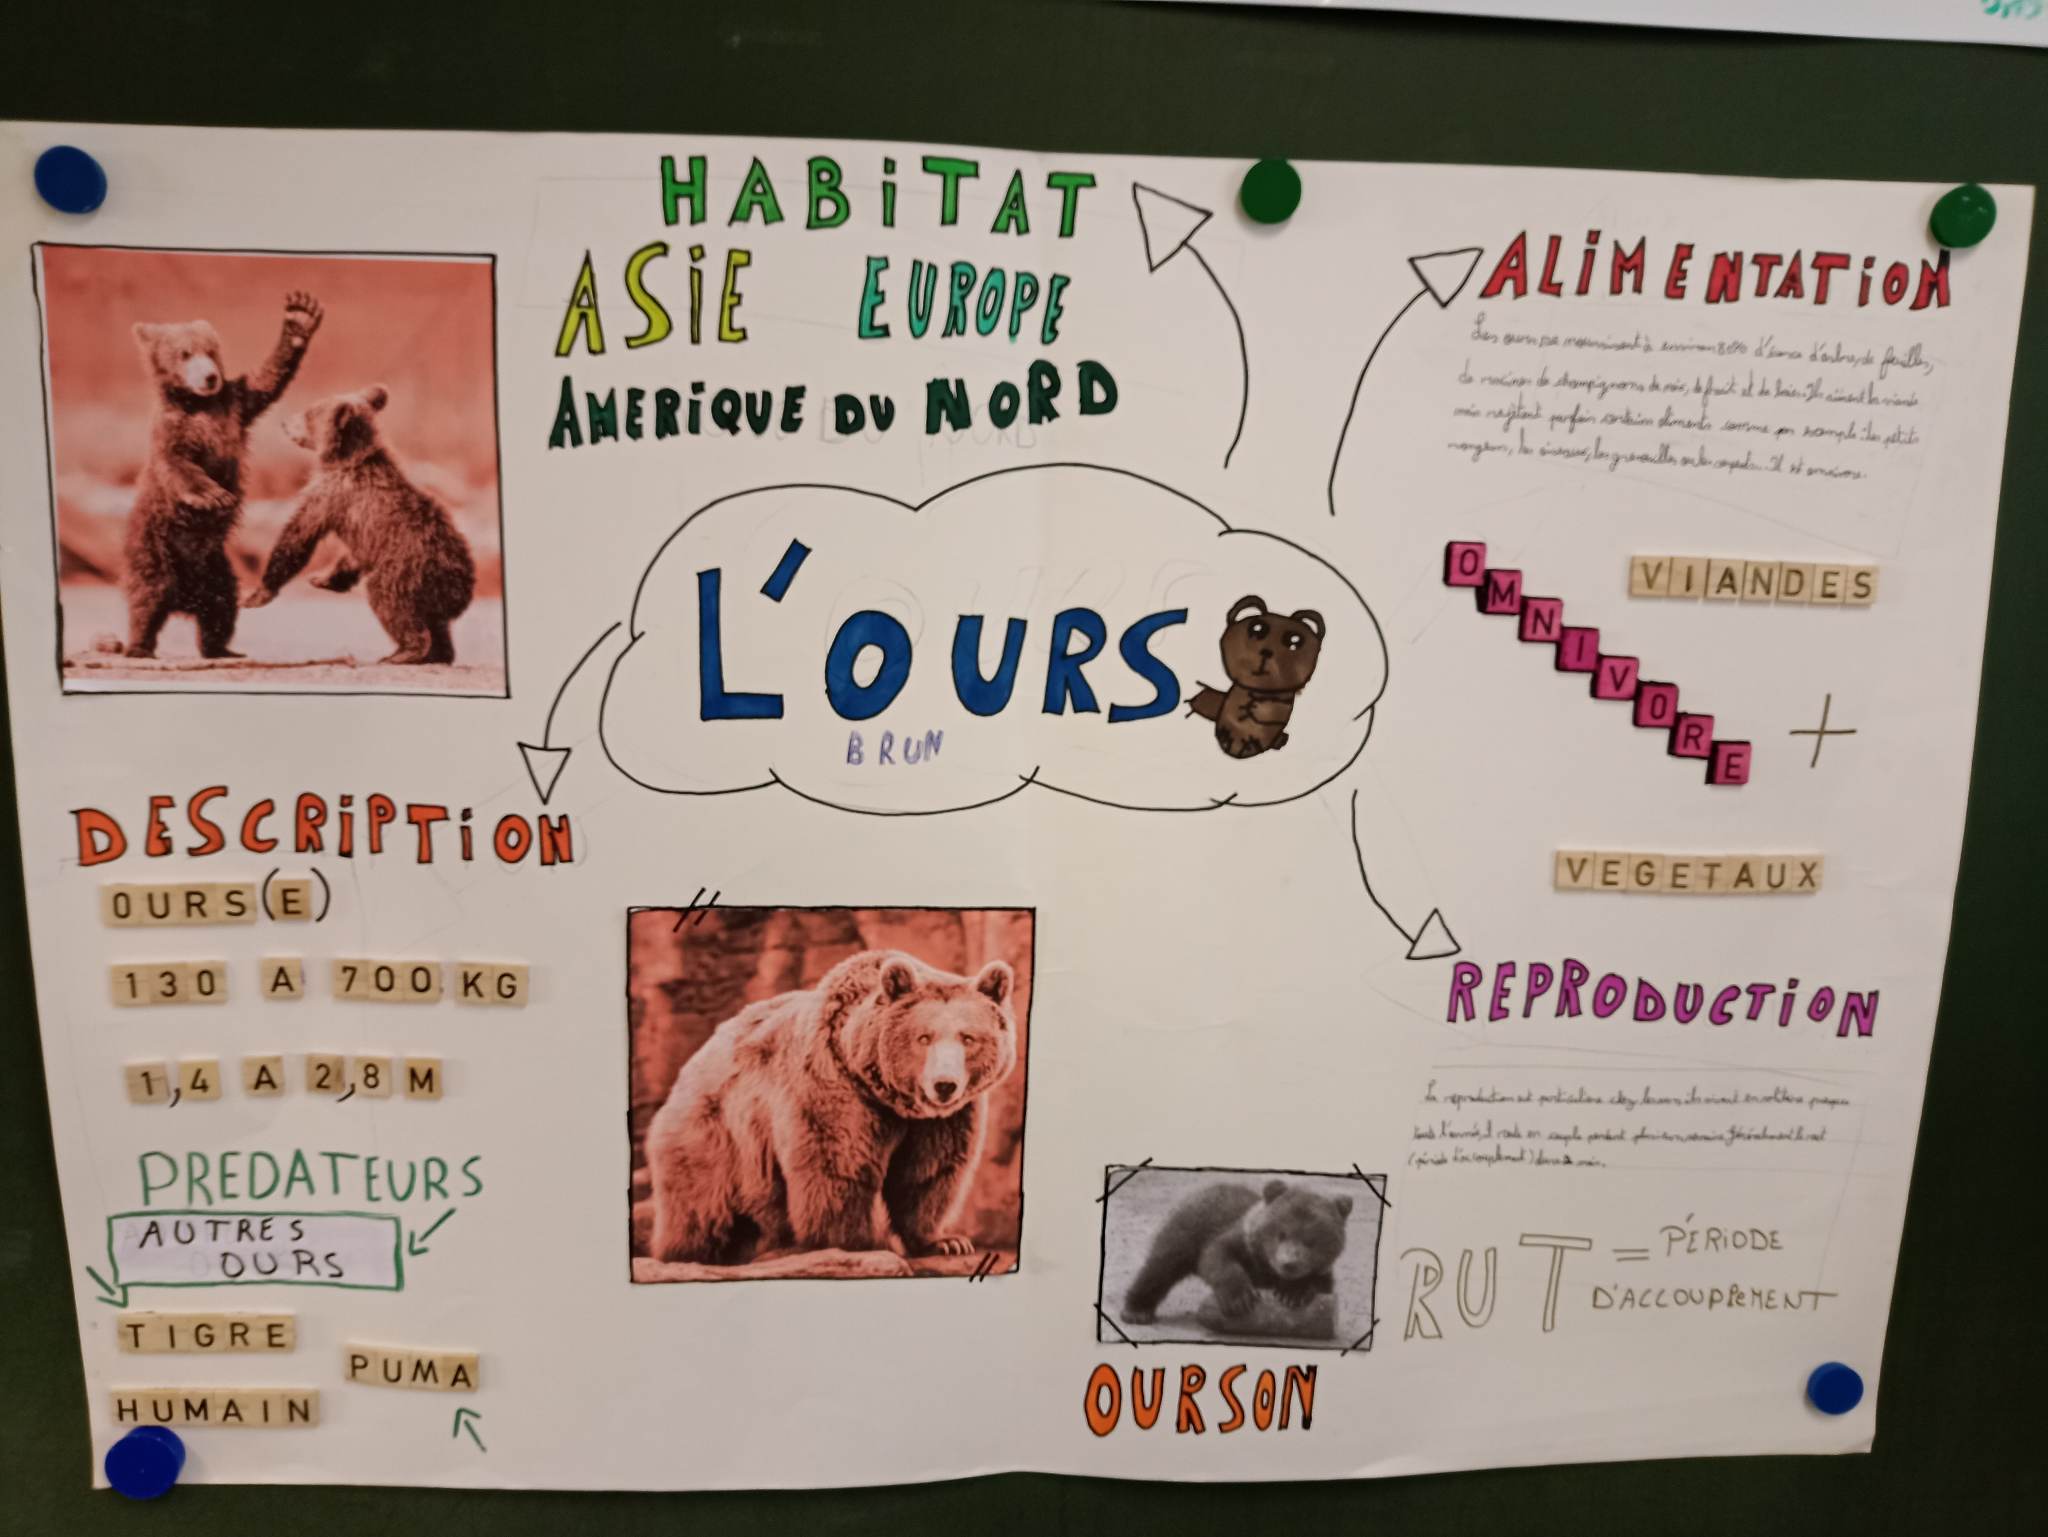 HABiTAT
ASiE EUROPE
AMERiQUE DU NORD
L'OURS
BRUN
ALiMENTATiON
Les ours se nourrissent à environ 80% d'écorce d'arbre, de feuilles,
de racines de champignons de noix, de fruit et de baies. Ils aiment la viande
mais rejettent parfois certains aliments comme par exemple: les petits
rongeurs, les oiseaux, les grenouilles ou les serpents... Il est omnivore.
OMNIVORE
VIANDES
+
VEGETAUX
DESCRiPTiON
OURS(E)
130 A 700 KG
1,4 A 2,8 M
PREDATEURS
AUTRES
OURS
TIGRE
PUMA
HUMAIN
REPRODUCTiON
La reproduction est particulière chez les ours ils vivent en solitaire presque
toute l'année, il reste en couple pendant plusieurs semaine. Généralement le rut
(période d'accouplement) dure mois.
RUT = PÉRiODE
D'ACCOUPLEMENT
OURSON